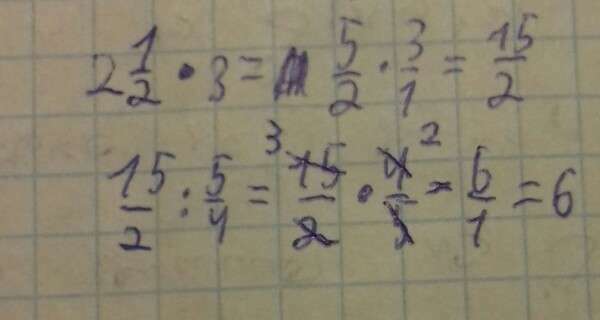 2 1/2 • 3 = 5/2 • 3/1 = 15/2
15/2 : 5/4 = ³15/2 • 4²/5 = 6/1 = 6